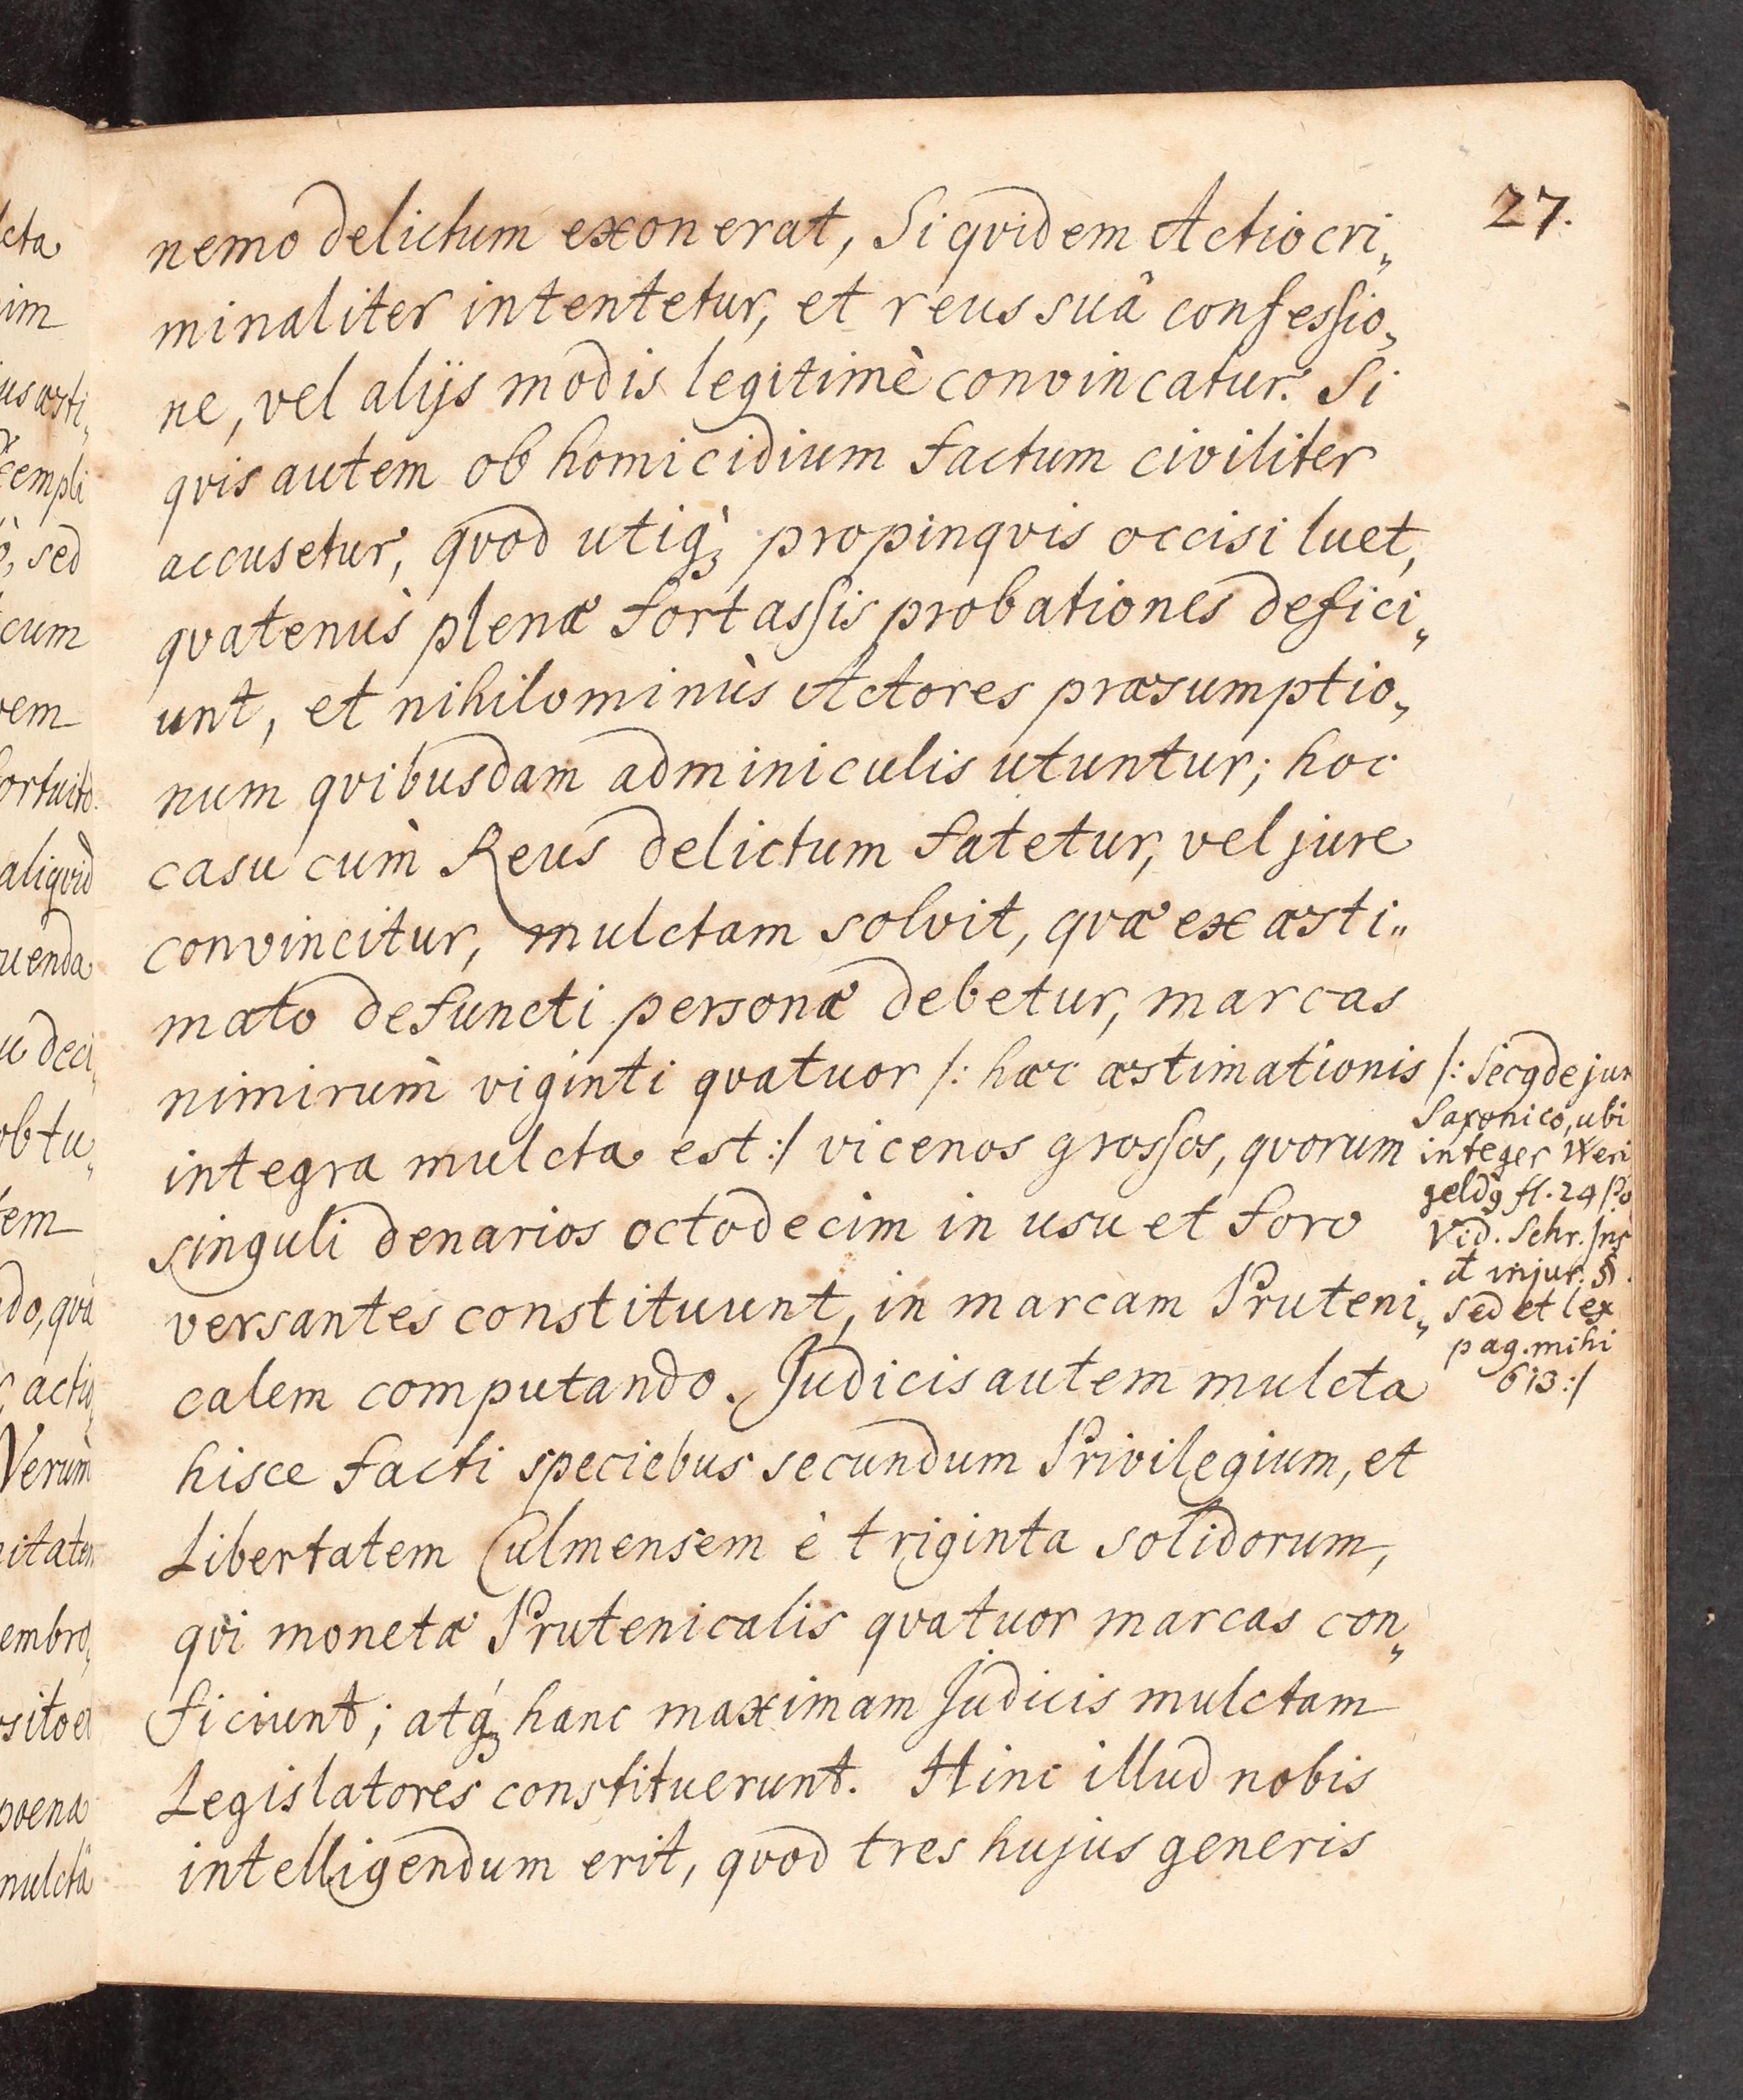 27.
nemo delictum exonerat, Siqvidem Actio cri„
minaliter intentetur, et reus suâ confessio„
ne, vel alijs modis legitimè convincatur. Si
qvis autem ob homicidium factum civiliter
accusetur, qvod utiq; propinqvis occisi luet,
qvatenùs plenæ fortassis probationes defici„
unt, et nihilominùs Actores præsumptio„
num qvibusdam adminiculis utuntur; hoc
casu cùm Reus delictum fatetur, vel jure
convincitur, mulctam solvit, qvæ ex æsti„
mato defuncti personæ debetur, marcas
nimirùm viginti qvatuor /: hæc æstimationis
integra mulcta est :/ vicenos grossos, qvorum
singuli denarios octodecim in usu et foro
versantes constituunt, in marcam Pruteni„
calem computando. Judicis autem mulcta
hisce facti speciebus secundum Privilegium, et
Libertatem Culmensem è triginta solidorum,
qvi monetæ Prutenicalis qvatuor marcas con„
ficiunt; atq; hanc maximam Judicis mulctam
Legislatores constituerunt. Hinc illud nobis
intelligendum erit, qvod tres hujus generis
/: Secq de jur
Saxonico, ubi
integer Weri
geldq fl. 24
Vid. Schr. Ins
injur. §.
sed et lex
pag. mihi
613 :/
cta
im
us æsti„
empli
sed
cum
em
ortuitò.
aliqvid
uenda
u deci„
ob tu„
em
do, qvâ
actio„
Verùm
itatem
embro„
sito et
poena
mulctâ